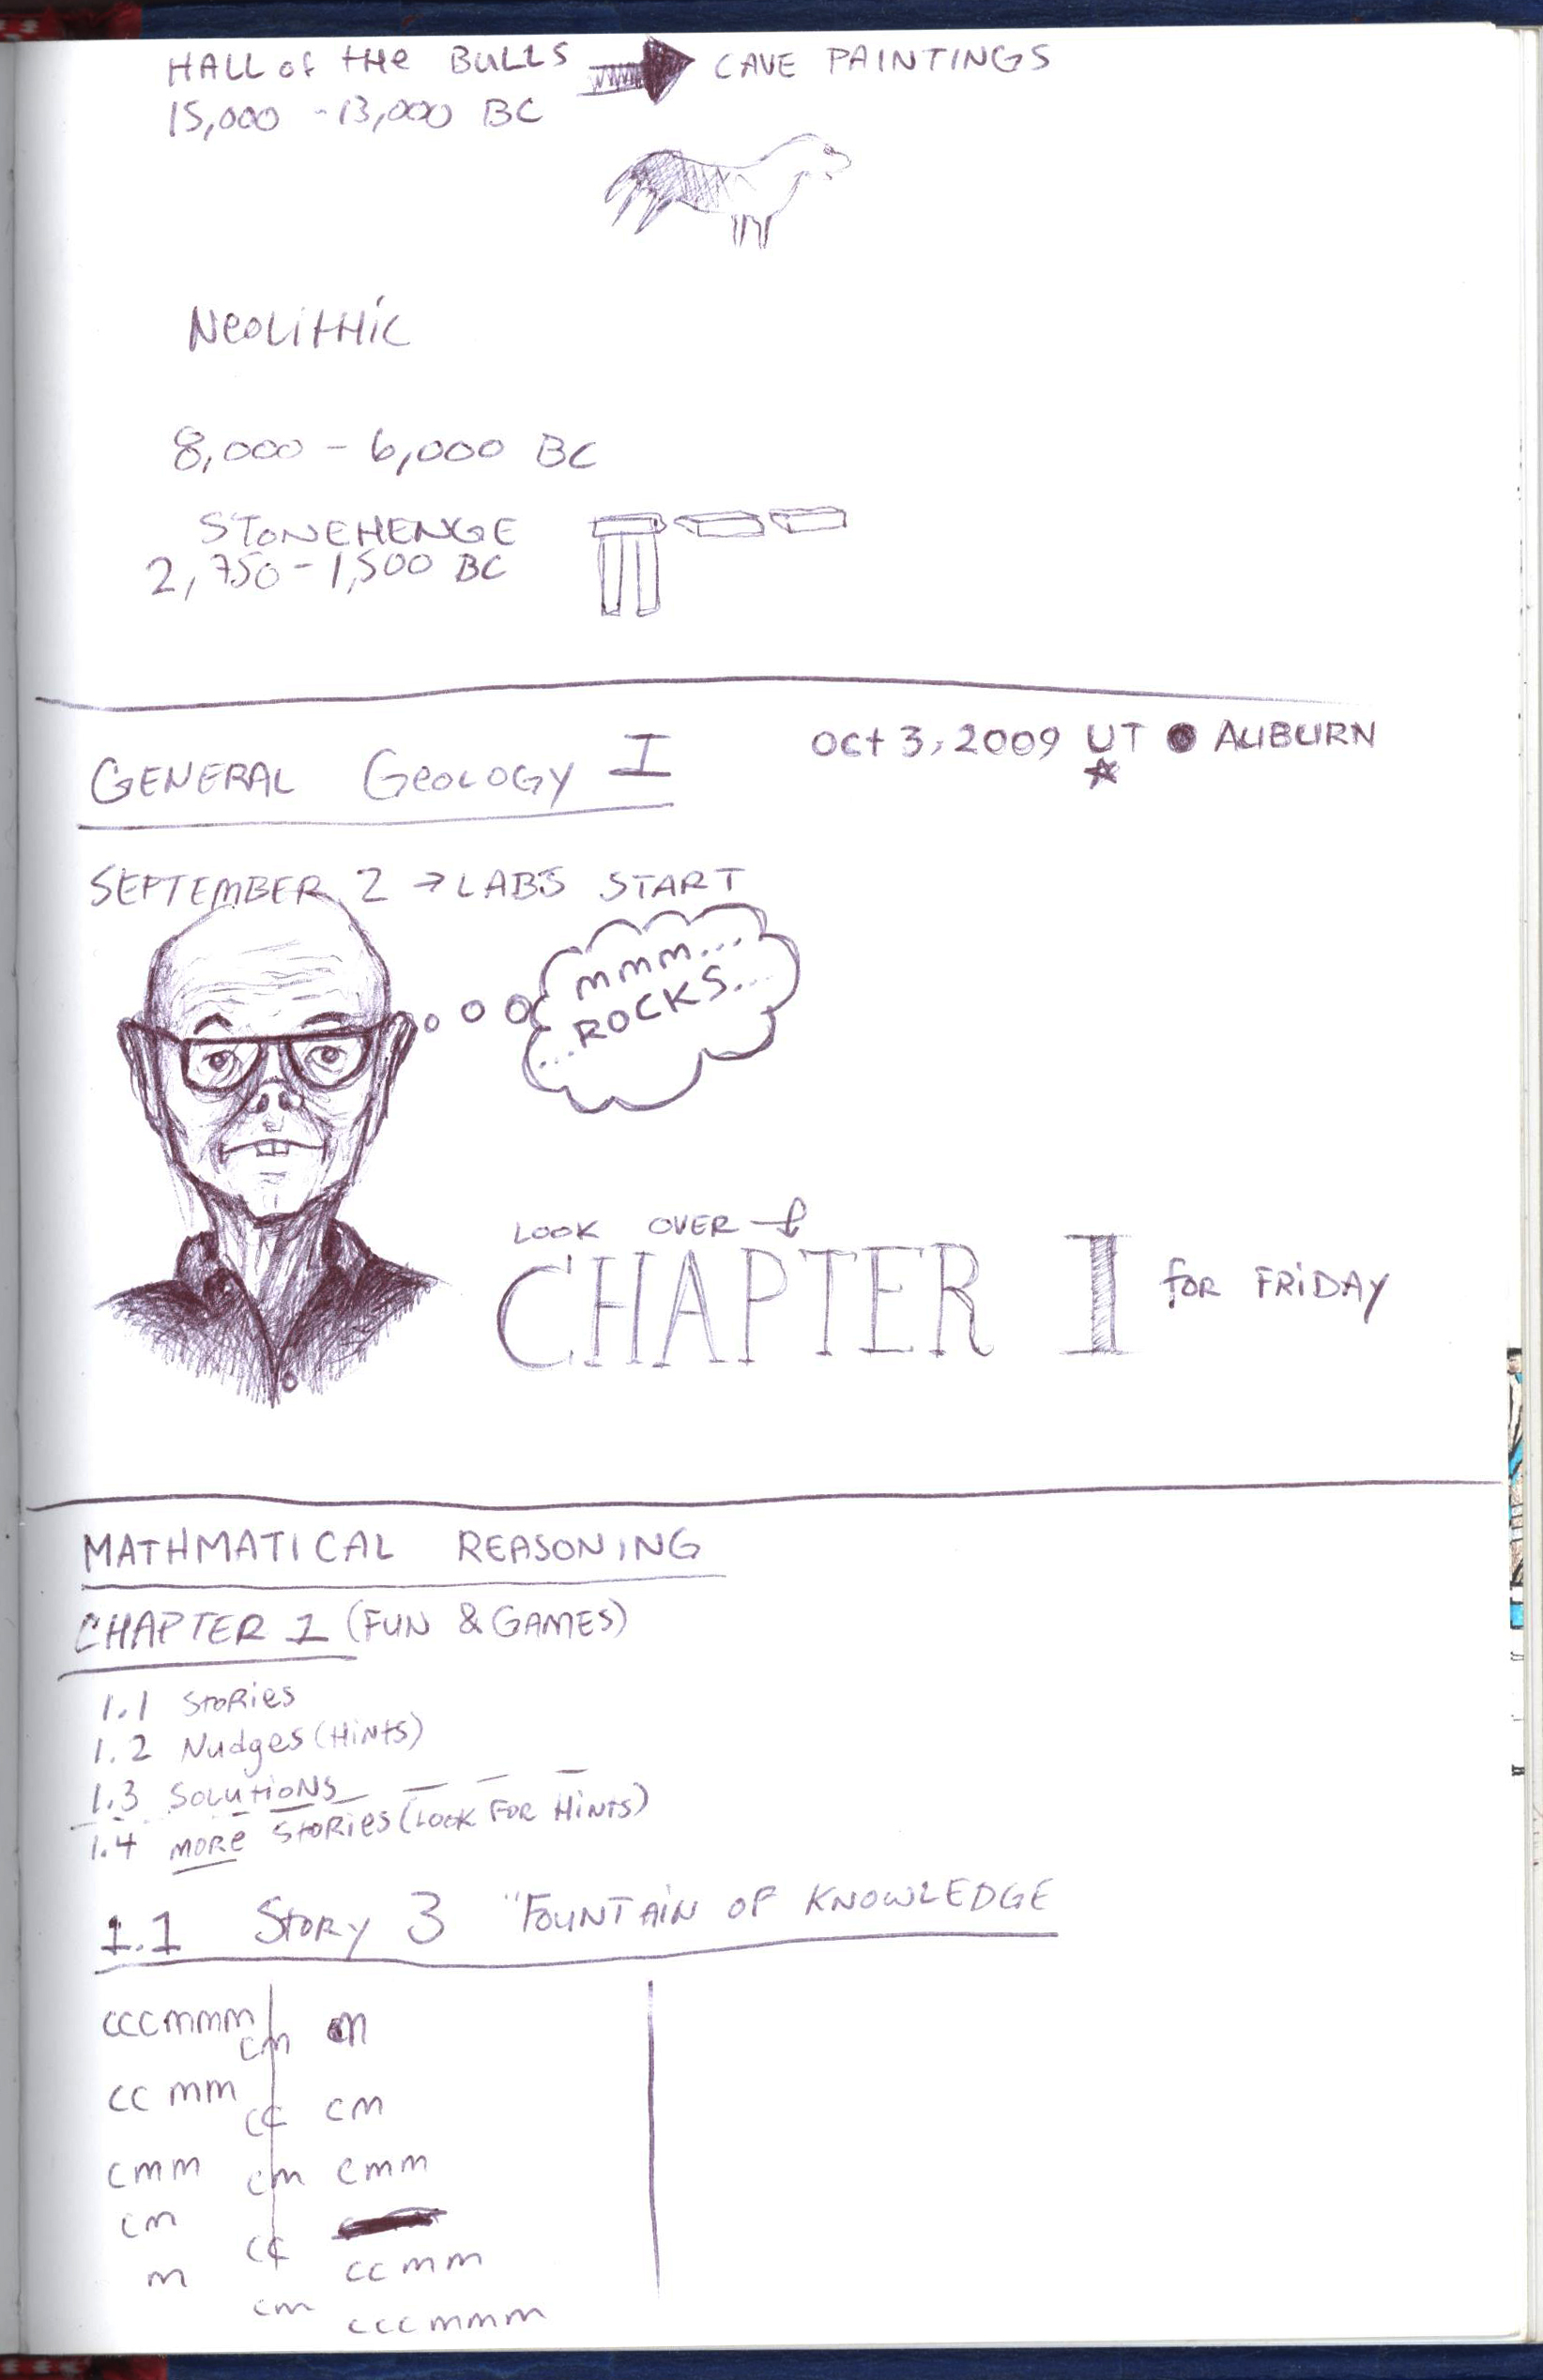 HALL of the BULLS → CAVE PAINTINGS
15,000 - 13,000 BC
NeoLitHic
8,000 - 6,000 BC
STONEHENGE
2,750 - 1,500 BC
GENERAL GeoLOGY I
Oct 3, 2009 UT ● AUBURN
SEPTEMBER 2 → LABS START
mmm...
...ROCKS...
LOOK OVER
CHAPTER I for FRiDAY
MATHMATICAL REASONING
CHAPTER 1 (FUN & GAMES)
1.1 StoRies
1.2 Nudges (HiNts)
1.3 SOLUtiONS
1.4 MORe StoRies (LOOK FOR HiNts)
1.1 StoRy 3 "FOUNTAiN OF KNOWLEDGE
cccmmm cm m
cc mm cc cm
cmm cm cmm
cm cc
m ccmm
cm cccmmm